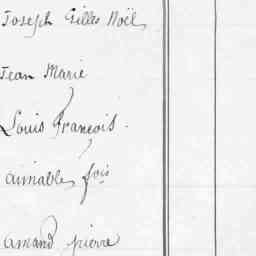 Joseph Gilles Noël
Jean Marie
Louis François.
aimable fois
amand pierre